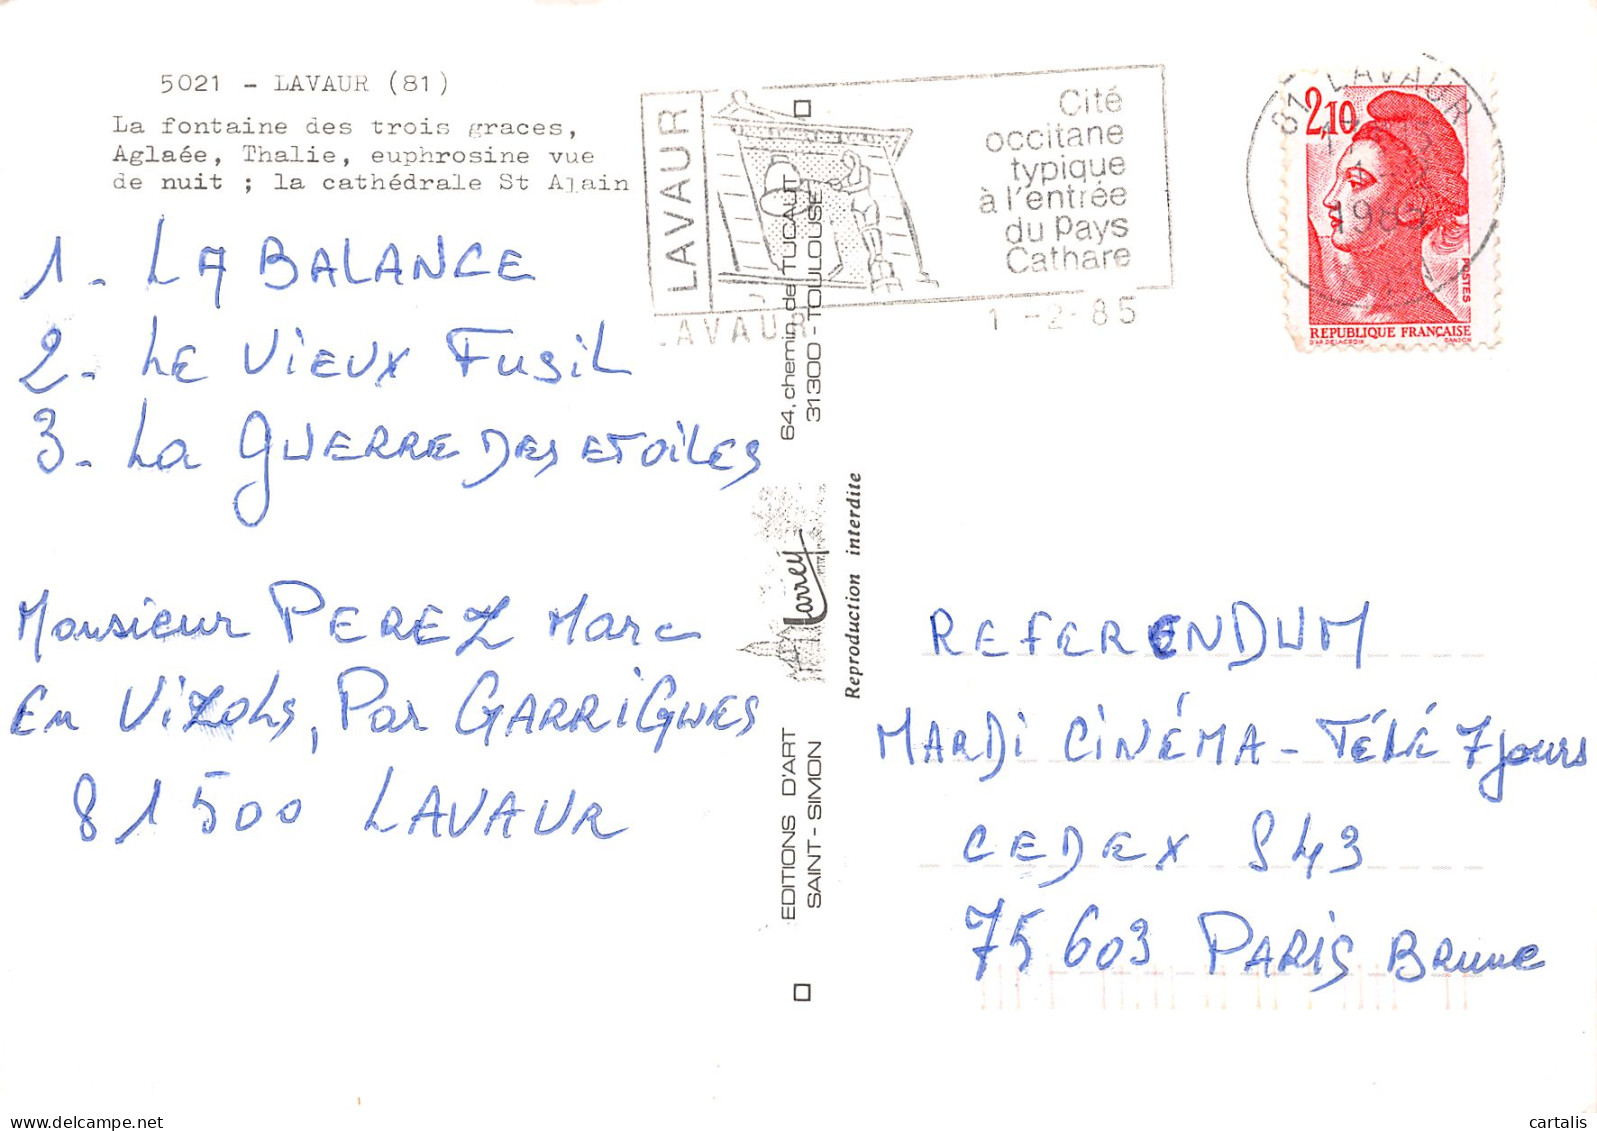 5021 - LAVAUR (81)
La fontaine des trois graces,
Aglaée, Thalie, euphrosine vue
de nuit ; la cathédrale St Alain
1. LA BALANCE
2. LE VIEUX FUSIL
3. LA GUERRE DES ETOILES
Monsieur PEREZ Marc
En VIZOLS, Par GARRIGUES
81500 LAVAUR
LAVAUR
Cité
occitane
typique
à l'entrée
du Pays
Cathare
LAVAUR
1 -2-85
81 LAVAUR
1985
2,10
POSTES
REPUBLIQUE FRANÇAISE
D'AP. DELACROIX GANDON
64, chemin de TUCAUT
31300 - TOULOUSE
Larrey
Reproduction interdite
EDITIONS D'ART
SAINT-SIMON
REFERENDUM
MARDI CINÉMA - TÉLÉ 7 jours
CEDEX 843
75603 PARIS BRUNE
cartalis